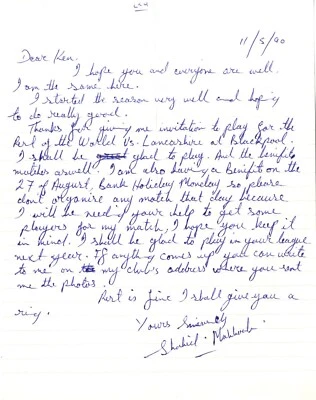 11/5/90
Dear Ken.
I hope you and everyone are well.
I am the same here.
I started the season very well and hoping
to do really good.
Thanks for giving me invitation to play for the
Rest of the World Vs. Lancashire at Blackpool.
I shall be glad to play. And the benefit
matches aswell. I am also having a Benefit on the
27 of August, Bank Holieday Monday so please
dont organise any match that day because
I will be needing your help to get some
players for my match, I hope you keep it
in mind. I shall be glad to play in your league
next year. If anything comes up you can write
to me on my club's address where you sent
me the photos.
Rest is fine I shall give you a
ring.
Yours Sincerely
Shahid. Mahboob